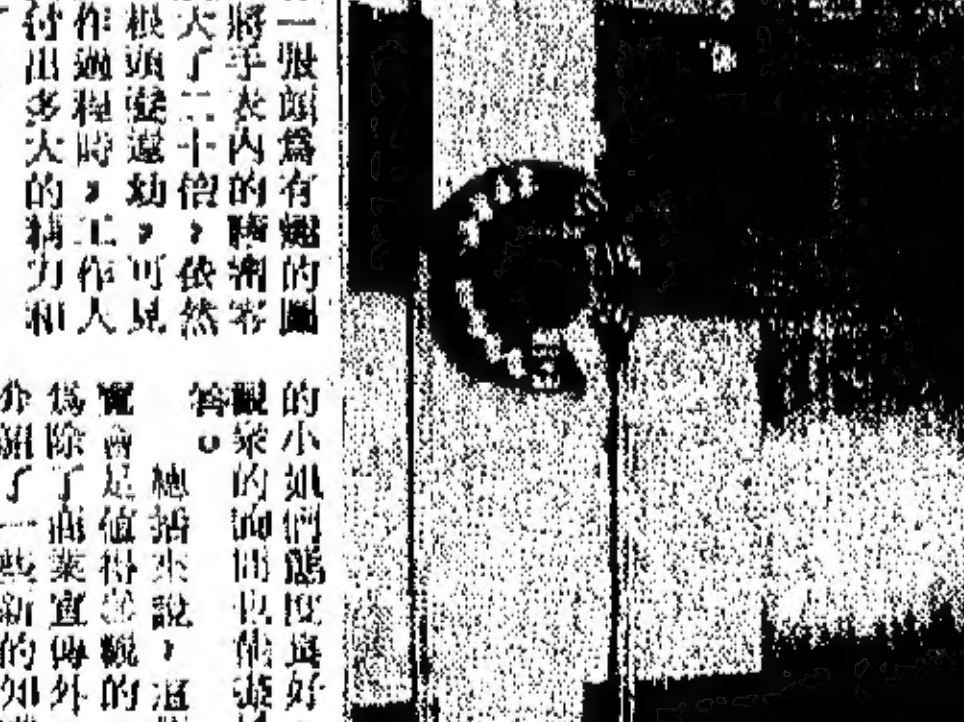 一張頗爲有趣的圖
將手表內的零
大了二十倍，依然
根頭髮還幼，可見
作過程時，工作人
付出多大的精力和
的小姐們態度良好
觀衆的詢問也能
答。
總括來說，這
會是值得參觀的
爲除了商業宣傳外
介紹了一些新的知